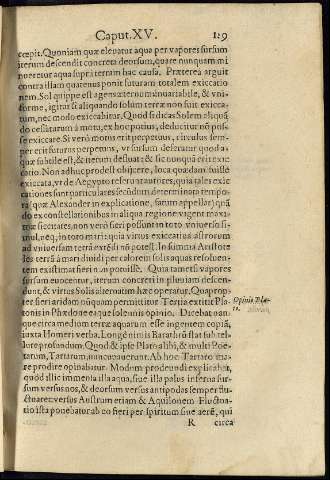 Caput. XV. 119
cœpit. Quoniam quæ eleuatur aqua per vapores sursum
iterum descendit concreta deorsum, quare nunquam mi
noraretur aqua supra terram hac causa. Præterea arguit
contra illam quatenus ponit futuram totalem exiccatio
nem. Sol quippe est agens æternum inuariabile, & vni-
forme, igitur si aliquando solum terræ non fuit exicca-
tum, nec modo exiccabitur. Quod si dicas Solem aliquã
do cessaturum à motu, ex hoc potius, deducitur nõ pos-
se exiccare. Si verò motus erit perpetuus, circulus sem-
per erit futurus perpetuus, vt sursum deferatur quod a-
quæ subtile est, & iterum defluat: & sic nunquã erit exic-
catio. Non adhuc prodest obijcere, loca quædam fuisse
exiccata, vt de Aegypto referunt autores; quia tales exic
cationes sunt particulares secundùm determinata tempo
ra (quæ Alexander in explicatione, fatum appellat) quã
do ex constellationibus in aliqua regione vagent maxi-
mæ siccitates, non verò fieri possunt in toto vniuerso si-
mul, neq, in toto mari: quia virtus exiccatiua Solis non
ad vniuersam terrã extẽdi nõ potest. In summa Aristote
les terrã à mari diuidi per calorem solis aquas resoluen-
tem existimat fieri non potuisse. Quia tametsi vapores
sursum euocentur, iterum concreti in pluuiam descen-
dunt, & virtus Solis alternatim hæc operatur. Quaprop-
ter fieri aridam nũquam permittitur. Tertia extitit Pla-
tonis in Phædone eaque solemnis opinio. Dicebat nan-
que circa medium terræ aquarum esse ingentem copiã,
iuxta Homeri verba. Longè nimis Barathrũ stat sub tel-
lure profundum. Quod & ipse Plato alibi, & multi Poe-
tarum, Tartarum, nuncupauerunt. Ab hoc Tartaro ma-
re prodire opinabatur. Modum prodeundi explicabat,
quòd illic immensa illa aqua, siue illa palus inferna sur-
sum versus nos, & deorsum versus antipodas semper flu-
ctuaret: versus Austrum etiam & Aquilonem. Fluctua-
tio ista ponebatur ab eo fieri per spiritum siue aerẽ, qui
R circa
Opinio Pla-